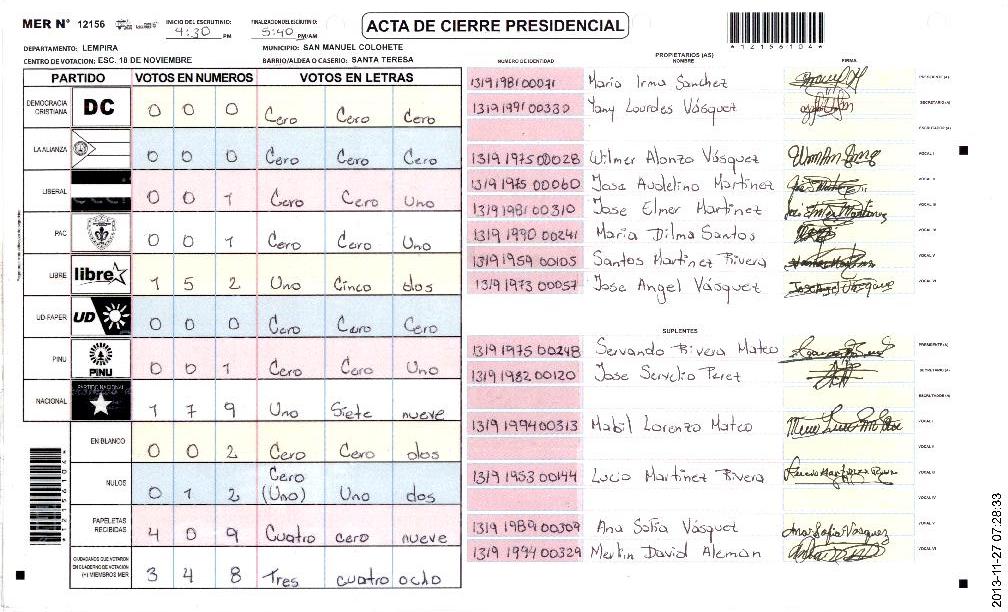 MER N° 12156
INICIO DEL ESCRUTINIO: 4:30 PM
FINALIZACION DEL ESCRUTINIO: 5:40 PM/AM
ACTA DE CIERRE PRESIDENCIAL
*12156104*
DEPARTAMENTO: LEMPIRA
MUNICIPIO: SAN MANUEL COLOHETE
CENTRO DE VOTACION: ESC. 18 DE NOVIEMBRE
BARRIO/ALDEA O CASERIO: SANTA TERESA
PARTIDO VOTOS EN NUMEROS VOTOS EN LETRAS
DEMOCRACIA CRISTIANA DC 0 0 0 Cero Cero Cero
LA ALIANZA 0 0 0 Cero Cero Cero
LIBERAL 0 0 1 Cero Cero Uno
PAC 0 0 1 Cero Cero Uno
LIBRE libre 1 5 2 Uno Cinco dos
UD-FAPER UD 0 0 0 Cero Cero Cero
PINU PINU 0 0 1 Cero Cero Uno
NACIONAL PARTIDO NACIONAL 1 7 9 Uno Siete nueve
EN BLANCO 0 0 2 Cero Cero dos
NULOS 0 1 2 Cero (Uno) Uno dos
PAPELETAS RECIBIDAS 4 0 9 Cuatro cero nueve
CIUDADANOS QUE VOTARON EN CUADERNO DE VOTACION (+) MIEMBROS MER 3 4 8 Tres cuatro ocho
*12156104*
PROPIETARIOS (AS)
NUMERO DE IDENTIDAD NOMBRE FIRMA
1319 1981 00071 Maria Irma Sanchez PRESIDENTE (A)
1319 1991 00330 Yany Lourdes Vásquez SECRETARIO (A)
ESCRUTADOR (A)
1319 1975 00028 Wilmer Alonzo Vásquez VOCAL I
1319 1975 00060 Jose Audelino Martinez VOCAL II
1319 1981 00310 Jose Elmer Martinez VOCAL III
1319 1990 00241 Maria Dilma Santos VOCAL IV
1319 1959 00105 Santos Martinez Rivera VOCAL V
1319 1973 00057 Jose Angel Vásquez VOCAL VI
SUPLENTES
1319 1975 00248 Servando Rivera Mateo PRESIDENTE (A)
1319 1982 00120 Jose Servelio Perez SECRETARIO (A)
ESCRUTADOR (A)
1319 1994 00313 Mabil Lorenzo Mateo VOCAL I
VOCAL II
1319 1953 00144 Lucio Martinez Rivera VOCAL III
VOCAL IV
1319 1989 00309 Ana Sofia Vásquez Ana Sofia Vasquez VOCAL V
1319 1994 00329 Merlin David Aleman VOCAL VI
2013-11-27 07:28:33